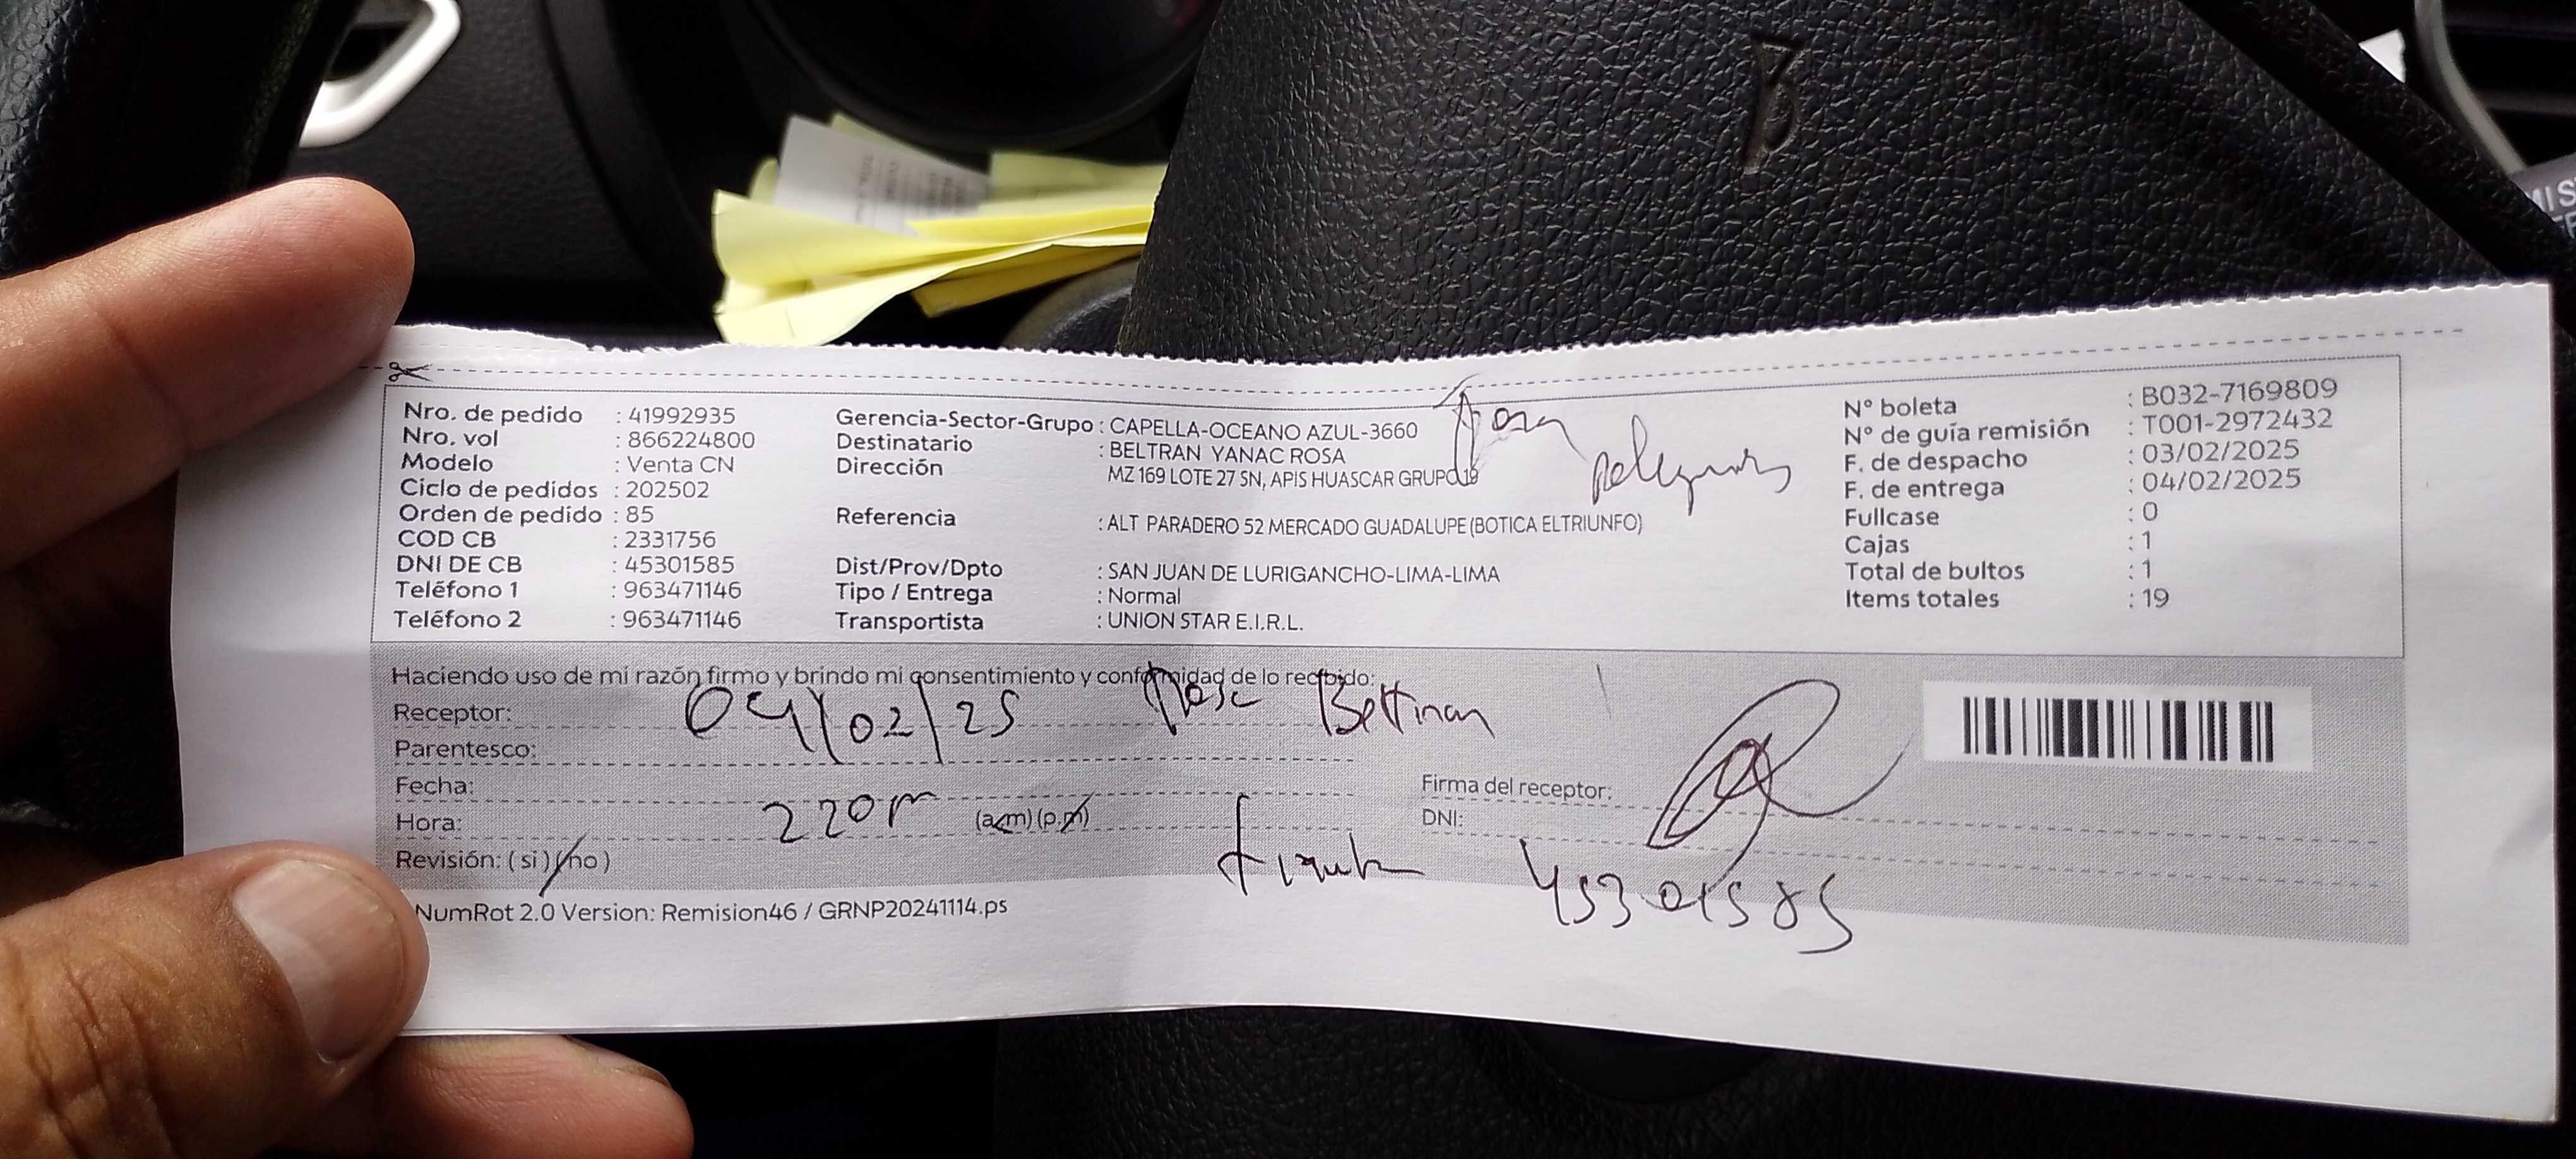 Nro. de pedido : 41992935
Nro. vol : 866224800
Modelo : Venta CN
Ciclo de pedidos : 202502
Orden de pedido : 85
COD CB : 2331756
DNI DE CB : 45301585
Teléfono 1 : 963471146
Teléfono 2 : 963471146
Gerencia-Sector-Grupo : CAPELLA-OCEANO AZUL-3660
Destinatario : BELTRAN YANAC ROSA
Dirección MZ 169 LOTE 27 SN, APIS HUASCAR GRUPO 19
Referencia : ALT PARADERO 52 MERCADO GUADALUPE (BOTICA ELTRIUNFO)
Dist/Prov/Dpto : SAN JUAN DE LURIGANCHO-LIMA-LIMA
Tipo / Entrega : Normal
Transportista : UNION STAR E.I.R.L.
N° boleta : B032-7169809
N° de guía remisión : T001-2972432
F. de despacho : 03/02/2025
F. de entrega : 04/02/2025
Fullcase : 0
Cajas : 1
Total de bultos : 1
Items totales : 19
Haciendo uso de mi razón firmo y brindo mi consentimiento y conformidad de lo recibido:
Receptor: 04/02/25 Beltran
Parentesco:
Fecha:
Hora: 220 (a.m) (p.m)
Revisión: (si) (no)
Firma del receptor:
DNI: 45301585
NumRot 2.0 Version: Remision46 / GRNP20241114.ps